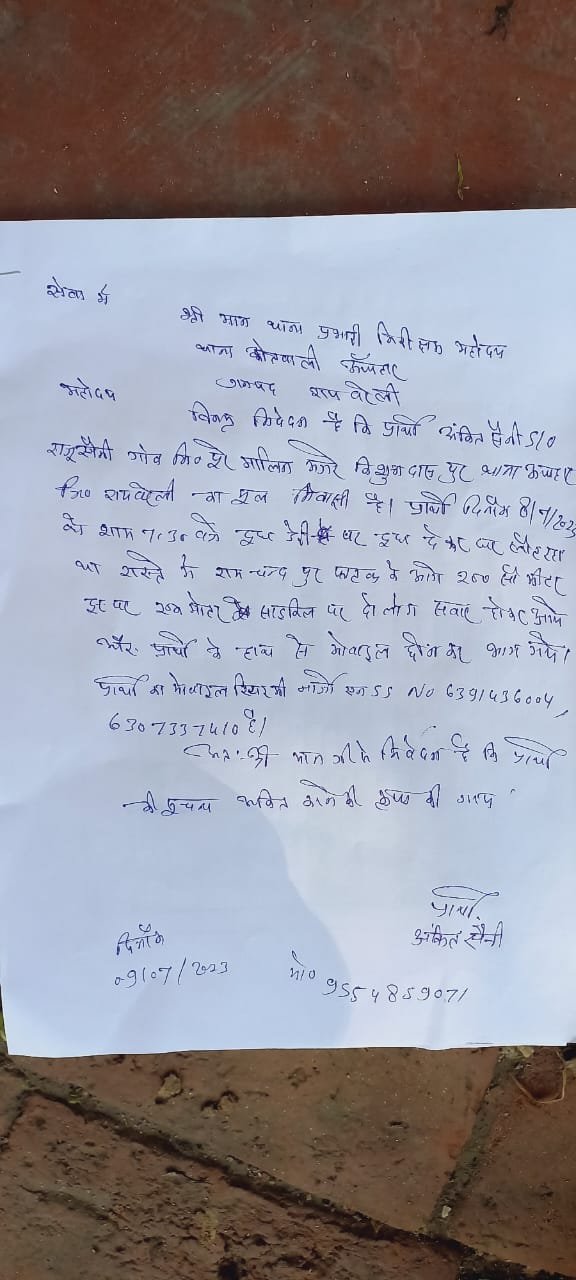 सेवा में
श्री मान थाना प्रभारी निरीक्षक महोदय
थाना कोतवाली ऊँचाहार
जनपद रायबरेली
महोदय
विनम्र निवेदन है कि प्रार्थी अंकित सैनी S/O
राजू सैनी गांव नि० पूरे मालिन मजरे विशुन दास पुर थाना ऊंचाहार
जि० रायबरेली का मूल निवासी है। प्रार्थी दिनाँक 8/7/2023
को शाम 7.30 बजे दूध डेरी पर दूध दे कर घर लौट रहा
था रास्ते में राम चन्द्र पुर फाटक के आगे 200 सौ मीटर
दूर पर मोटर साइकिल पर दो लोग सवार होकर आये
और प्रार्थी के हाथ से मोबाइल छीन कर भाग गये।
प्रार्थी का मोबाइल No 6391436004,
6307337410 है।
अतः श्री मान जी से निवेदन है कि प्रार्थी
की सूचना अंकित करने की कृपा की जाय
प्रार्थी
अंकित सैनी
दिनाँक
09/07/2023
मो० 9554859071